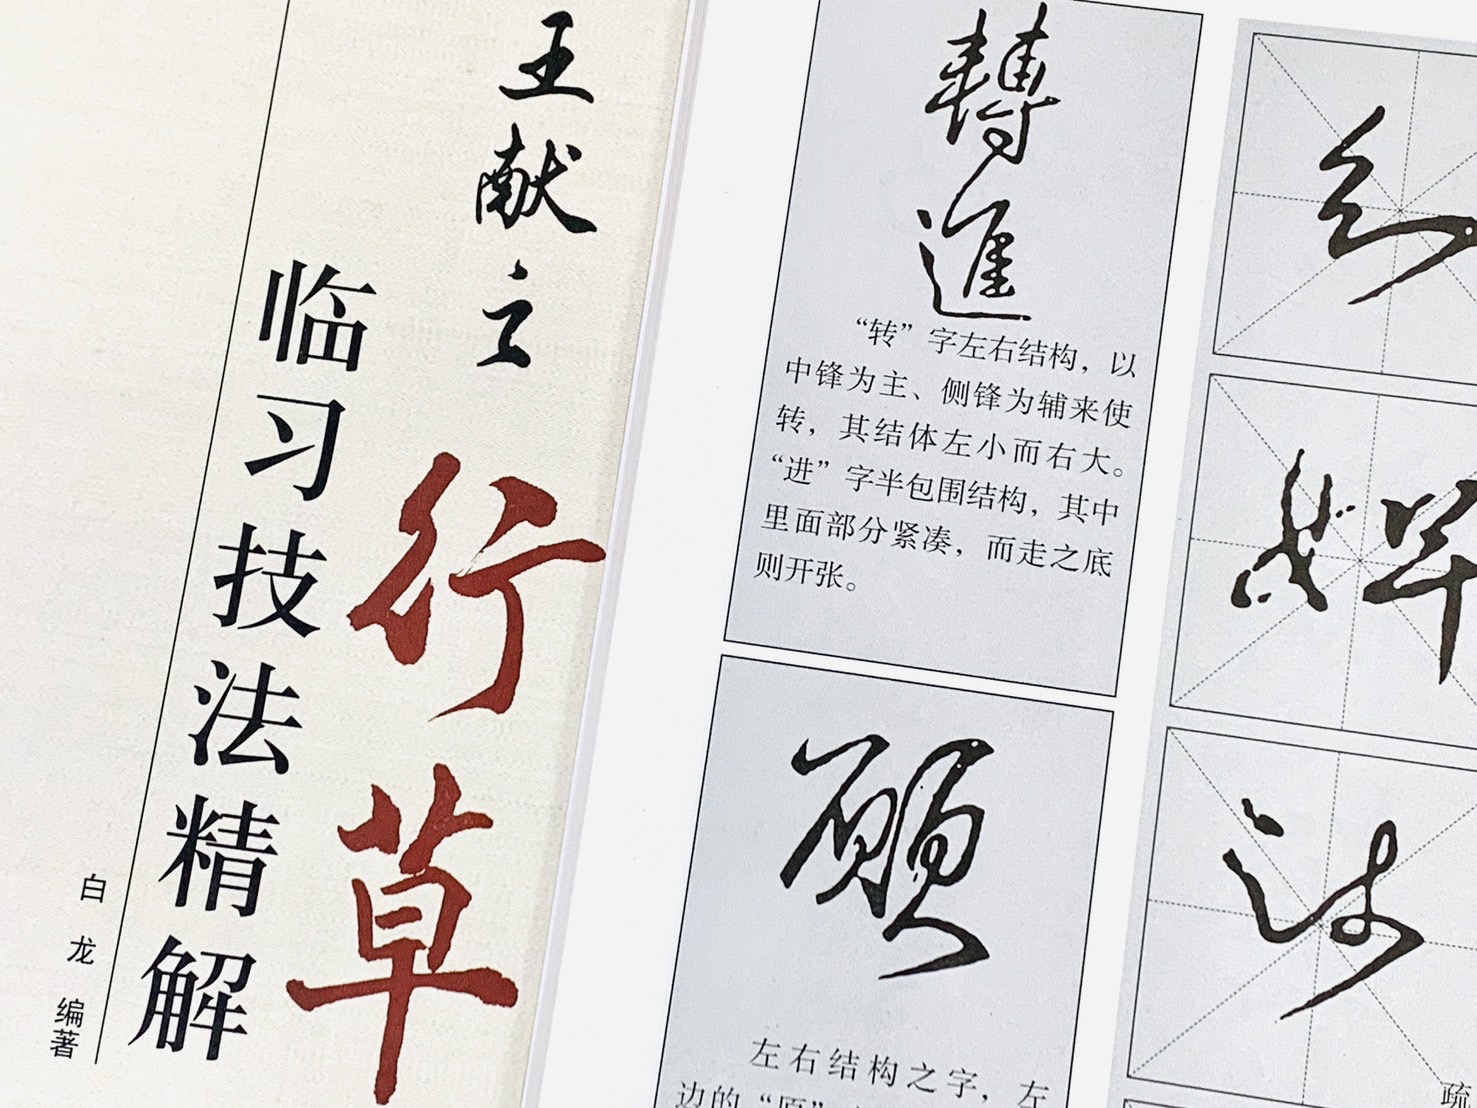 王献之
行草
临习技法精解
白龙 编著
轉
進
“转”字左右结构，以
中锋为主、侧锋为辅来使
转，其结体左小而右大。
“进”字半包围结构，其中
里面部分紧凑，而走之底
则开张。
願
左右结构之字，左
边的“原”
疏